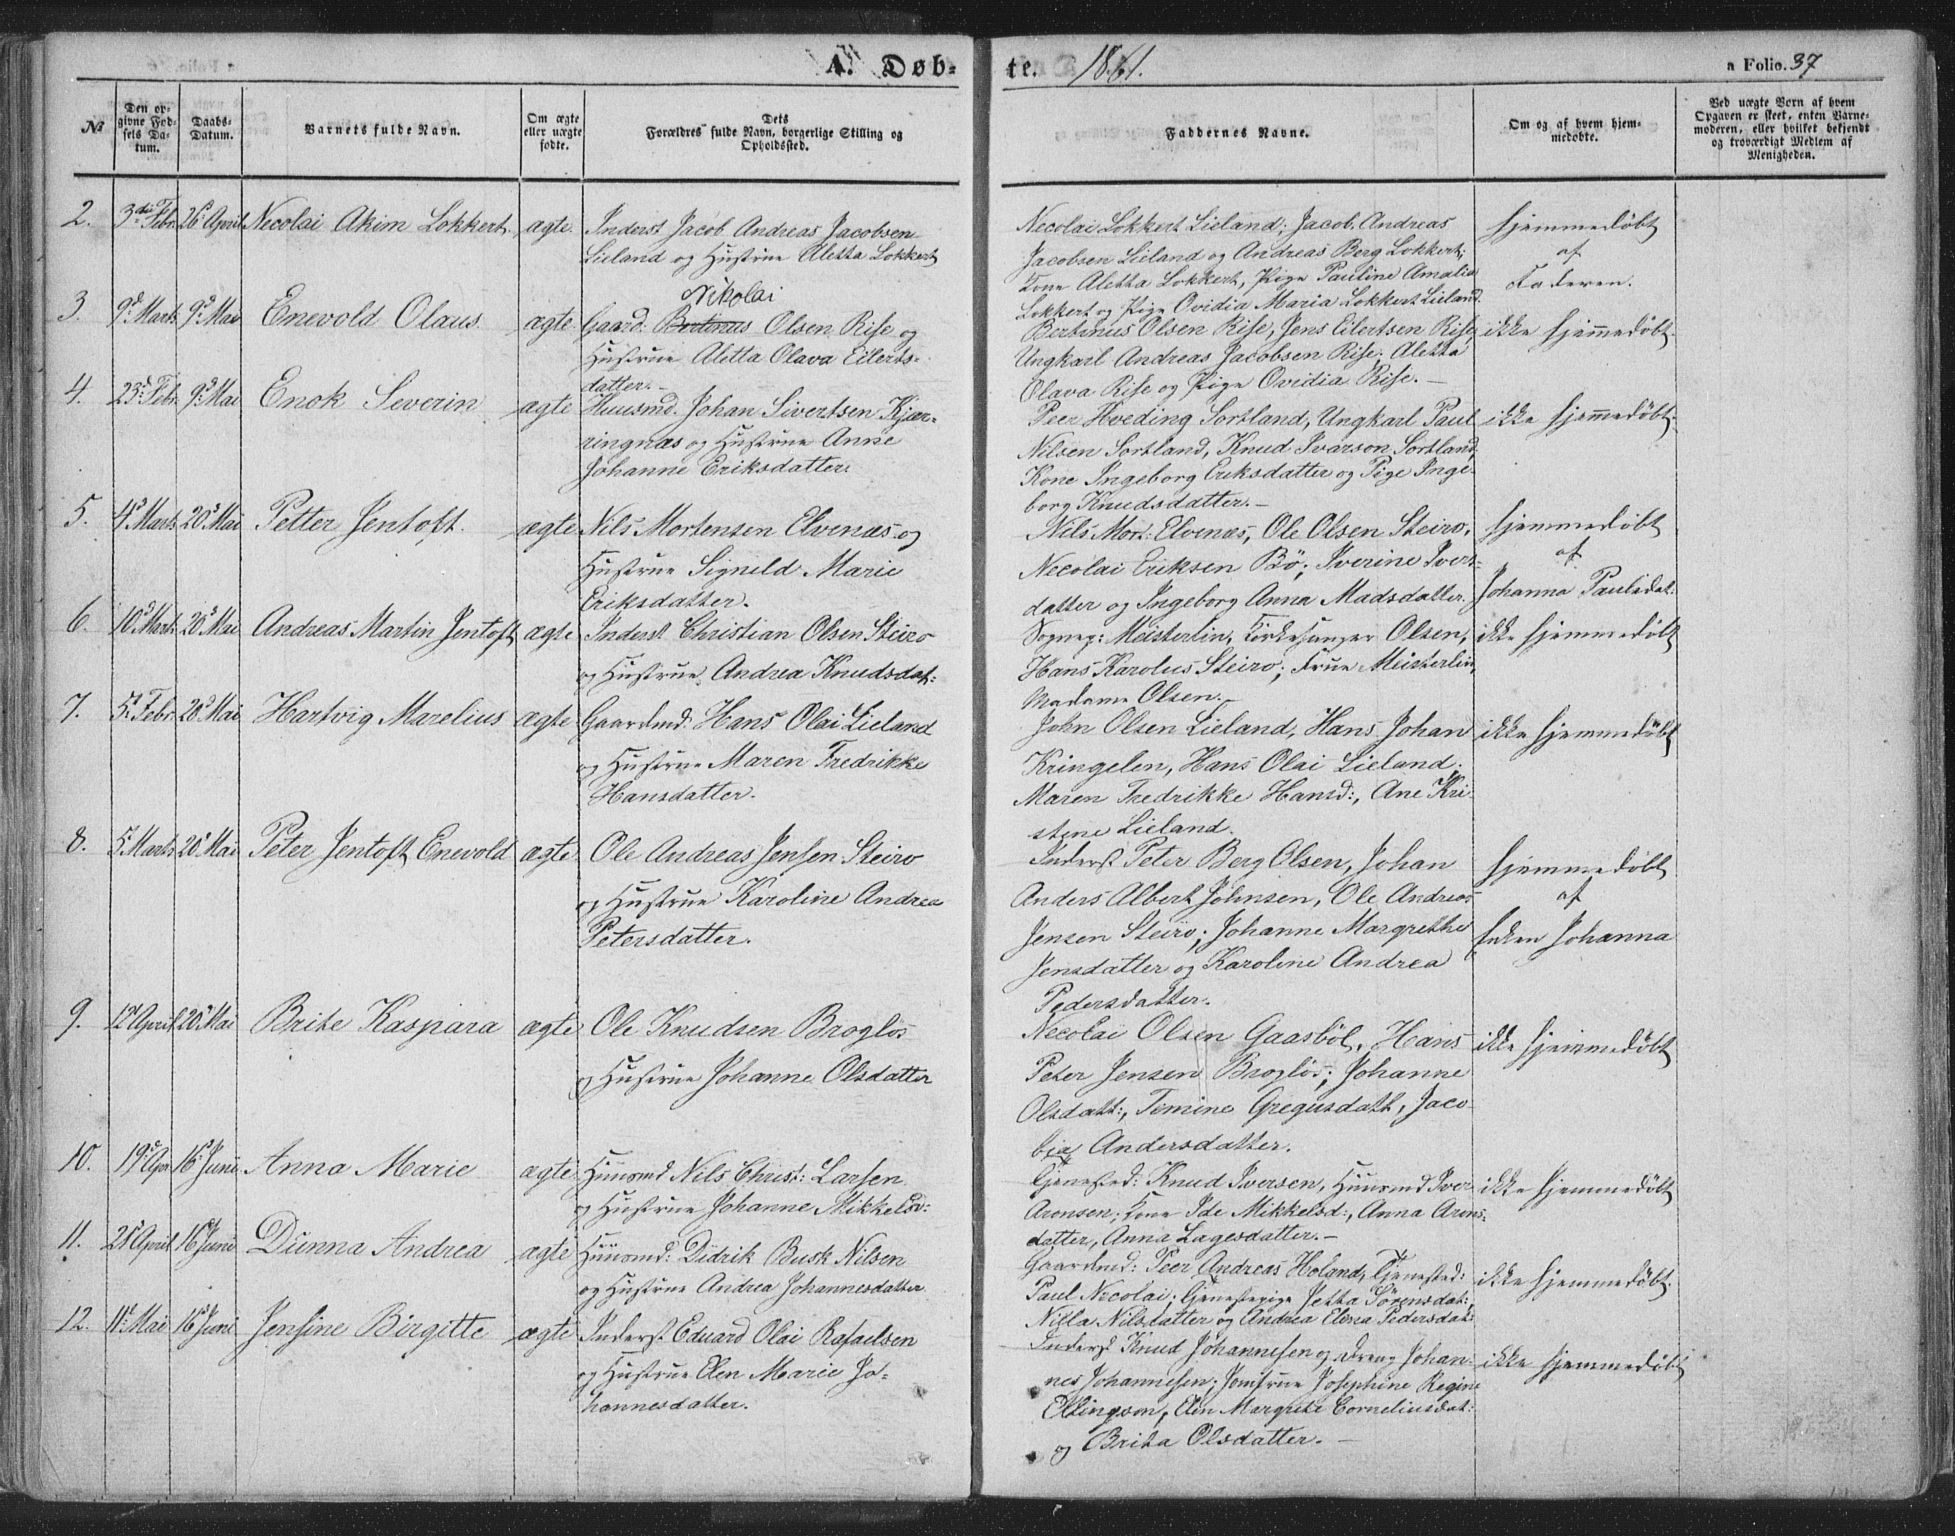 A. Døb-
te. 1861.
a Folio. 37
№
Den op-
givne Fød-
sels Da-
tum.
Daabs-
Datum.
Barnets fulde Navn.
Om ægte
eller uægte
fødte.
Dets
Forældres fulde Navn, borgerlige Stilling og
Opholdssted.
Faddernes Navne.
Om og af hvem hjem-
medøbte.
Ved uægte Børn af hvem
Opgaven er skeet, enten Barne-
moderen, eller hvilket bekjendt
og troværdigt Medlem af
Menigheden.
2. 3die Febr. 26de April Necolai Akim Lokkert. ægte. Inderst Jacob Andreas Jacobsen
Lieland og Hustrue Aletta Lokkert
Necolai Lokkert Lieland; Jacob Andreas
Jacobsen Lieland og Andreas Berg Lokkert;
Kone Aletta Lokkert, Pige Pauline Amalia
Lokkert og Pige Ovidia Maria Lokkert Lieland
hjemmedøbt
af
Faderen.
3. 9d Marts 9d Mai Enevold Olaus ægte Gaard. Bertinus Olsen Rise og
Nikolai
Hustrue Aletta Olava Eilerts-
datter.-
Bertinus Olsen Rise, Jens Eilertsen Rise,
Ungkarl Andreas Jacobsen Rise; Aletta
Olava Rise og Pige Ovidia Rise. -
ikke hjemmedøbt.
4. 23d Febr. 9d Mai Enok Severin ægte Huusmd. Johan Sivertsen Kjær-
ringnæs og Hustrue Anne
Johanne Eriksdatter.
Peer Hveding Sortland, Ungkarl Paul
Nilsen Sortland, Knud Ivarson Sortland,
Kone Ingeborg Eriksdatter og Pige Inge-
borg Knudsdatter. -
ikke hjemmedøbt.
5. 4d Marts 20d Mai Petter Jentoft. ægte Nils Mortensen Elvenæs og
Hustrue Signeld Marie
Eriksdatter.
Nils Mort: Elvenæs, Ole Olsen Steiro,
Necolai Eriksen Bö; Iverine Ivers-
datter og Ingeborg Anna Madsdatter.
hjemmedøbt
af
Johanna Paulsdat:
6. 10d Marts 20d Mai Andreas Martin Jentoft ægte Inderst Christian Olsen Steiro
og Hustrue Andrea Knudsdat:
Sognep: Meisterlin, Kirkesanger Olsen,
Hans Karolus Steiro; Frue Meisterlin,
Madame Olsen. -
ikke hjemmedøbt
7. 5d Febr 20d Mai Hartvig Marelius ægte Gaardmd: Hans Olai Lieland
og Hustrue Maren Fredrikke
Hansdatter.
John Olsen Lieland, Hans Johan
Kringelen, Hans Olai Lieland;
Maren Fredrikke Hansd:, Ane Kri-
stene Lieland.
ikke hjemmedøbt
8. 5 Marts 20d Mai Peter Jentoft Enevold ægte Ole Andreas Jensen Steiro
og Hustrue Karoline Andrea
Petersdatter.
Inderst Peter Berg Olsen, Johan
Anders Albert Johnsen, Ole Andreas
Jensen Steiro; Johanne Margrethe
Jensdatter og Karoline Andrea
Pedersdatter.
hjemmedøbt
af
Enken Johanna
9. 12d April 20d Mai Brite Kaspara ægte Ole Knudsen Broglös
og Hustrue Johanne Olsdatter
Necolai Olsen Gaasböl, Hans
Peter Jensen Broglös; Johanne
Olsdatt:, Temine Gregusdatt, Jaco-
bia Andersdatter.
ikke hjemmedøbt
10. 19d Apr 16d Juni Anna Marie ægte Huusmd Nils Christ: Larsen
og Hustrue Johanne Mikkelsd:
Tjenested: Knud Iversen, Huusmd Iver
Aronsen; Kone Ide Mikkelsd:, Anna Arons-
datter, Anna Lagesdatter. -
ikke hjemmedøbt
11. 21d April 16d Juni Dünna Andrea ægte Huusmd: Didrik Busk Nilsen
og Hustrue Andrea Johannesdatter
Gaardmd: Peer Andreas Holand, Tjenested:
Paul Necolai; Tjenestepige Jetta Sörensdat:,
Nilla Nilsdatter og Andrea Elena Pedersdat:
ikke hjemmedøbt.
12. 11d Mai 16d Juni Jensine Birgitte ægte Inderst Eduard Olai Rafaelsen
og Hustrue Elen Marie Jo-
hannesdatter.
Inderst Knud Johannesen og Dreng Johan-
nes Johannesen; Jomfrue Josephine Regine
Ellingson, Elen Margrete Corneliusdat:
og Brita Olsdatter. -
ikke hjemmedøbt